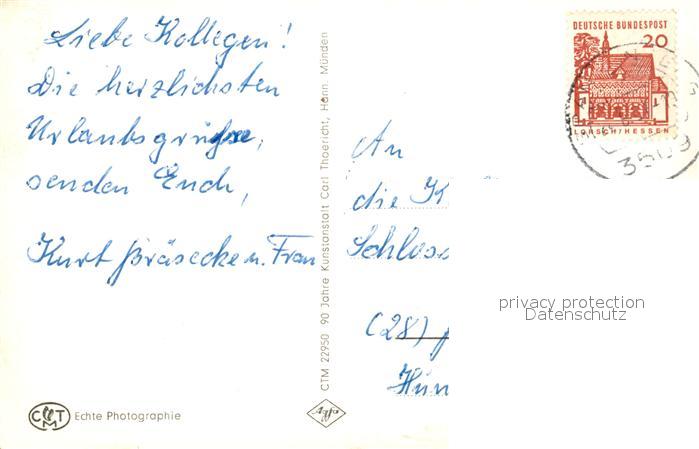 Liebe Kollegen!
Die herzlichsten
Urlaubsgrüße,
senden Euch,
Kurt Bräsecke u. Frau
CTM 22950 90 Jahre Kunstanstalt Carl Thoericht, Hann. Münden
DEUTSCHE BUNDESPOST
20
LORSCH/HESSEN
3509
An
die K
Schloss
(28)
Hün
privacy protection
Datenschutz
CTM Echte Photographie
Agfa